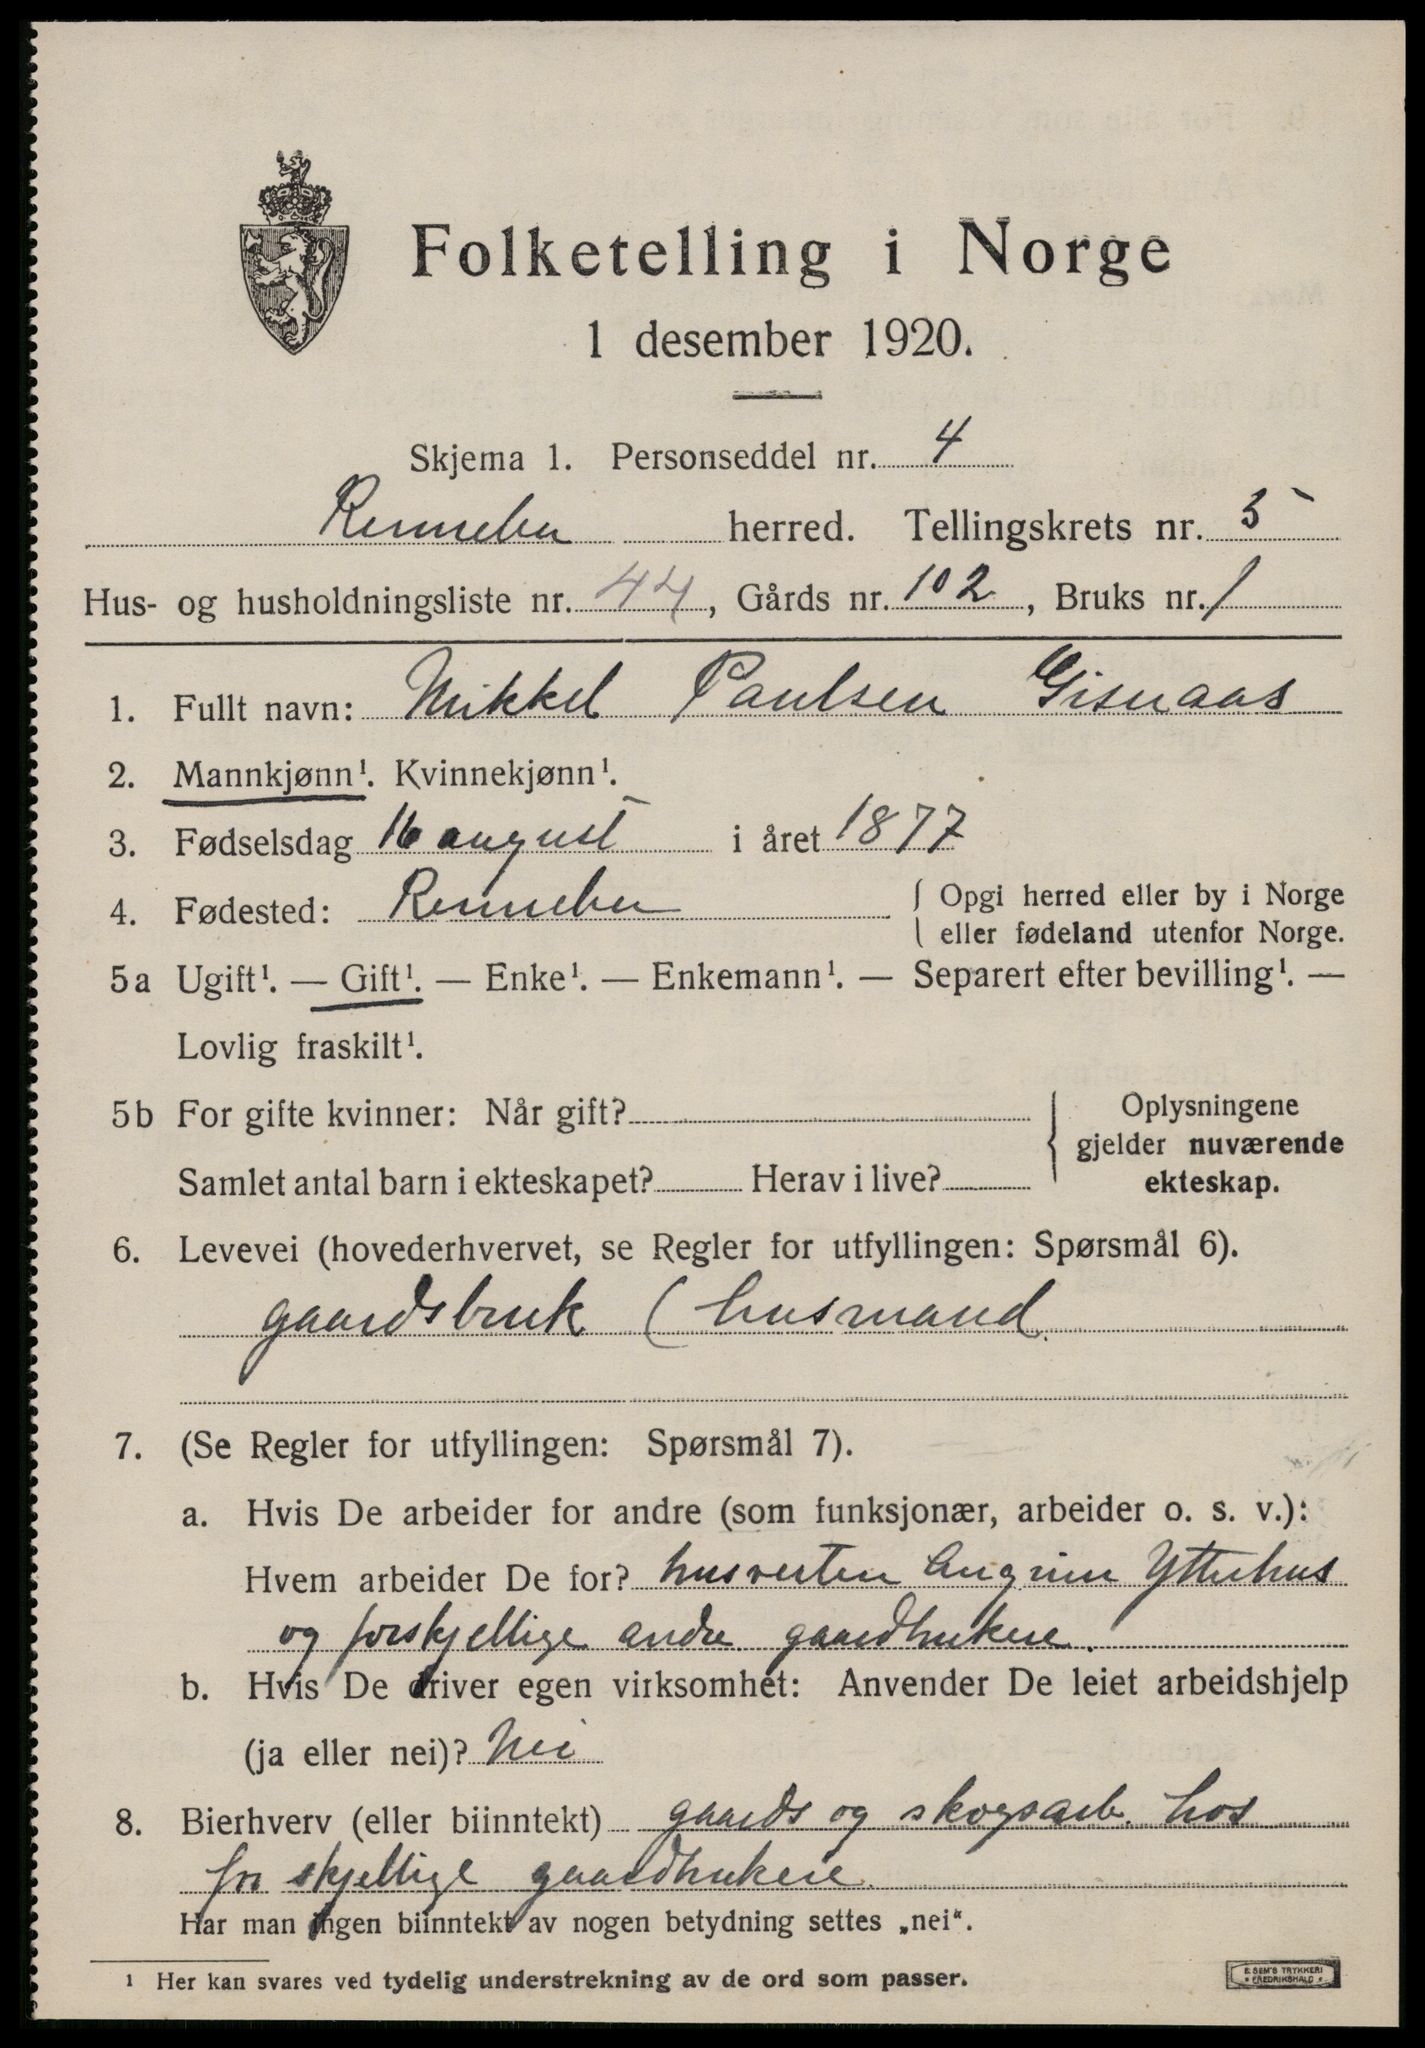 Folketelling i Norge
1 desember 1920.
Skjema 1. Personseddel nr. 4
Rennebu herred. Tellingskrets nr. 5
Hus- og husholdningsliste nr. 44, Gårds nr. 102, Bruks nr. 1
1. Fullt navn: Mikkel Paulsen Gisnaas
2. Mannkjønn¹. Kvinnekjønn¹.
3. Fødselsdag 16 august i året 1877
4. Fødested: Rennebu { Opgi herred eller by i Norge
eller fødeland utenfor Norge.
5a Ugift¹. — Gift¹. — Enke¹. — Enkemann¹. — Separert efter bevilling¹. —
Lovlig fraskilt¹.
5b For gifte kvinner: Når gift? { Oplysningene
gjelder nuværende
Samlet antal barn i ekteskapet? Herav i live? ekteskap.
6. Levevei (hovederhvervet, se Regler for utfyllingen: Spørsmål 6).
gaardsbruk (husmand
7. (Se Regler for utfyllingen: Spørsmål 7).
a. Hvis De arbeider for andre (som funksjonær, arbeider o. s. v.):
Hvem arbeider De for? husverten Angrim Ytterhus
og forskjellige andre gaardbrukere.
b. Hvis De driver egen virksomhet: Anvender De leiet arbeidshjelp
(ja eller nei)? Nei
8. Bierhverv (eller biinntekt) gaards og skogsarb. hos
forskjellige gaardbrukere.
Har man ingen biinntekt av nogen betydning settes „nei".
¹ Her kan svares ved tydelig understrekning av de ord som passer.
E. SEM'S TRYKKERI
FREDRIKSHALD